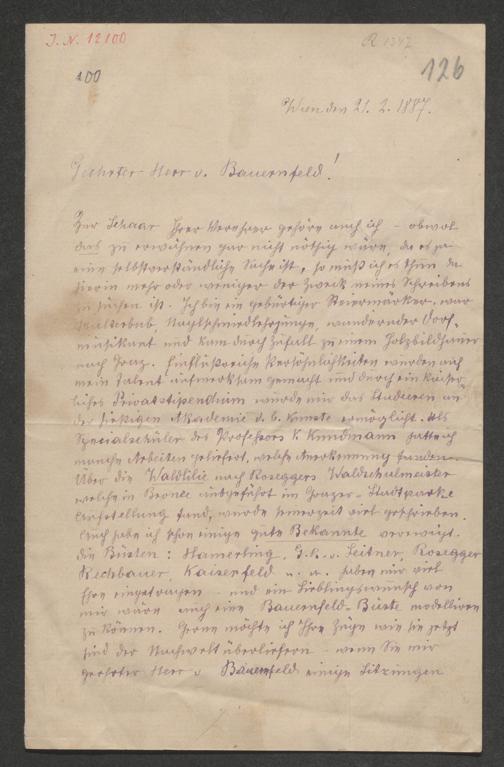 J. N. 12100
R 1347
100
126
Wien den 21. 2. 1887.
Geehrter Herr v. Bauernfeld!
Zur Schaar Ihrer Verehrer gehöre auch ich – obwol
das zu erwähnen gar nicht nöthig wäre, da es ja
eine selbstverständliche Sache ist, so muß ich es thun da
hierin mehr oder weniger der Zweck meines Schreibens
zu suchen ist. Ich bin ein gebürtiger Steiermarker, war
Halterbub, Naglschmiedlehrjunge, wandernder Dorf-
musikant und kam durch Zufall zu einem Holzbildhauer
nach Graz. Einflußreiche Persönlichkeiten wurden auf
mein Talent aufmerksam gemacht und durch ein kaiser-
liches Privatstipendium wurde mir das Studieren an
der hiesigen Akademie d. b. Künste ermöglicht. Als
Specialschüler des Professors K Kundmann hatte ich
manche Arbeiten geliefert, welche Anerkennung fanden.
Über die Waldlilie nach Roseggers Waldschulmeister
welche in Bronce ausgeführt im Grazer-Stadtparke
Aufstellung fand, wurde seinerzeit viel geschrieben.
Auch habe ich schon einige gute Bekannte verewigt.
die Büsten: Hamerling, G. R. v. Leitner, Rosegger
Rechbauer, Kaiserfeld u. a. haben mir viel
Ehre eingetragen – und ein Lieblingswunsch von
mir wäre auch eine Bauernfeld-Büste modelliren
zu können. Gerne möchte ich Ihre Züge wie sie jetzt
sind der Nachwelt überliefern – wenn Sie mir
geehrter Herr v Bauernfeld einige Sitzungen